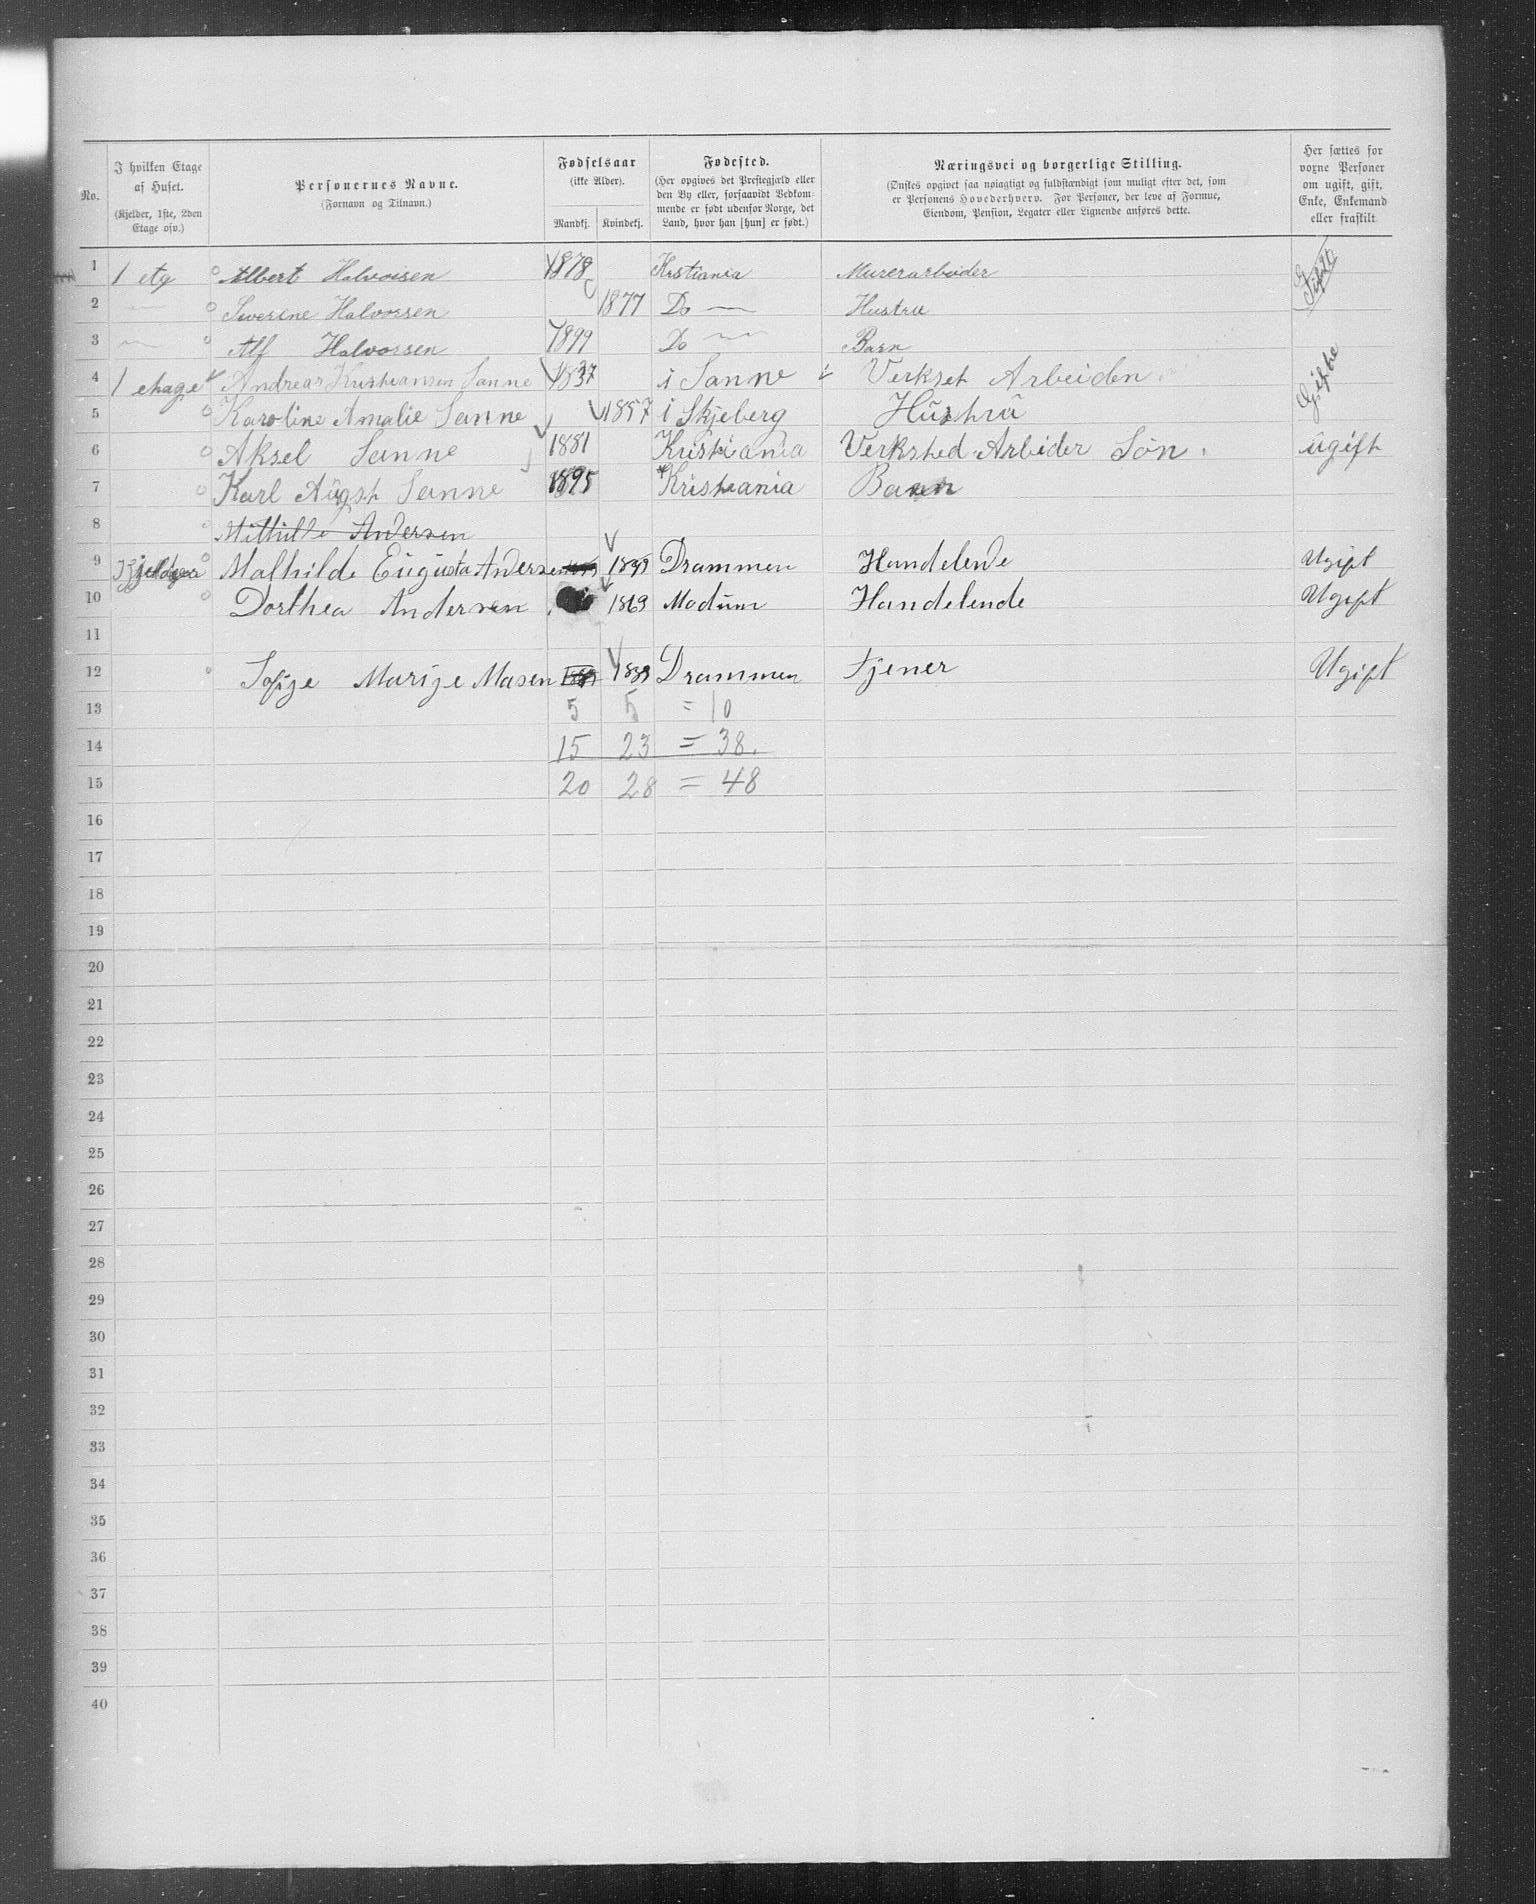 No.
I hvilken Etage af Huset. (Kjelder, 1ste, 2den Etage osv.)
Personernes Navne. (Fornavn og Tilnavn.)
Fødselsaar (ikke Alder). Mandkj. Kvindekj.
Fødested. (Her opgives det Prestegjæld eller den By eller, forsaavidt Vedkommende er født udenfor Norge, det Land, hvor han [hun] er født.)
Næringsvei og borgerlige Stilling. (Ønskes opgivet saa nøiagtigt og fuldstændigt som muligt efter det, som er Personens Hovederhverv. For Personer, der leve af Formue, Eiendom, Pension, Legater eller Lignende anføres dette.)
Her sættes for voxne Personer om ugift, gift, Enke, Enkemand eller fraskilt.
1 1 etg Albert Halvorsen 1878 Kristiania Murerarbeider
2 Severine Halvorsen 1877 Do — Hustru
3 Alf Halvorsen 1899 Do — Barn
4 1 etage Andreas Kristiansen Sanne 1837 i Sanne Verkset Arbeiden Gifte
5 Karoline Amalie Sanne 1857 i Skjeberg Hustru
6 Aksel Sanne 1881 Kristiania Verksted Arbeider Søn. ugift
7 Karl Augst Sanne 1895 Kristiania Baren
8 Mithilde Andersen
9 Mathilde Eugusta Andersen 1899 Drammen Handelende Ugift
10 Dorthea Andersen 1869 Modum Handelende Ugift
11
12 Sofije Marije Masen 1889 Drammen Tjener Ugift
13 5 5 = 10
14 15 23 = 38.
15 20 28 = 48
16
17
18
19
20
21
22
23
24
25
26
27
28
29
30
31
32
33
34
35
36
37
38
39
40